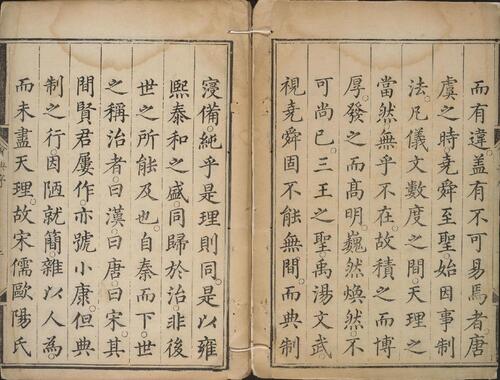 而有違。蓋有不可易焉者。唐
虞之時。堯舜至聖。始因事制
法。凡儀文數度之間。天理之
當然。無乎不在。故積之而博
厚。發之而髙明。巍然煥然。不
可尚已。三王之聖。禹湯文武
視堯舜固不能無間。而典制
寖備。純乎是理則同。是以雍
熙泰和之盛。同歸於治。非後
世之所能及也。自秦而下。世
之稱治者。曰漢。曰唐。曰宋。其
間賢君屢作。亦號小康。但典
制之行。因陋就簡。雜以人為。
而未盡天理。故宋儒歐陽氏